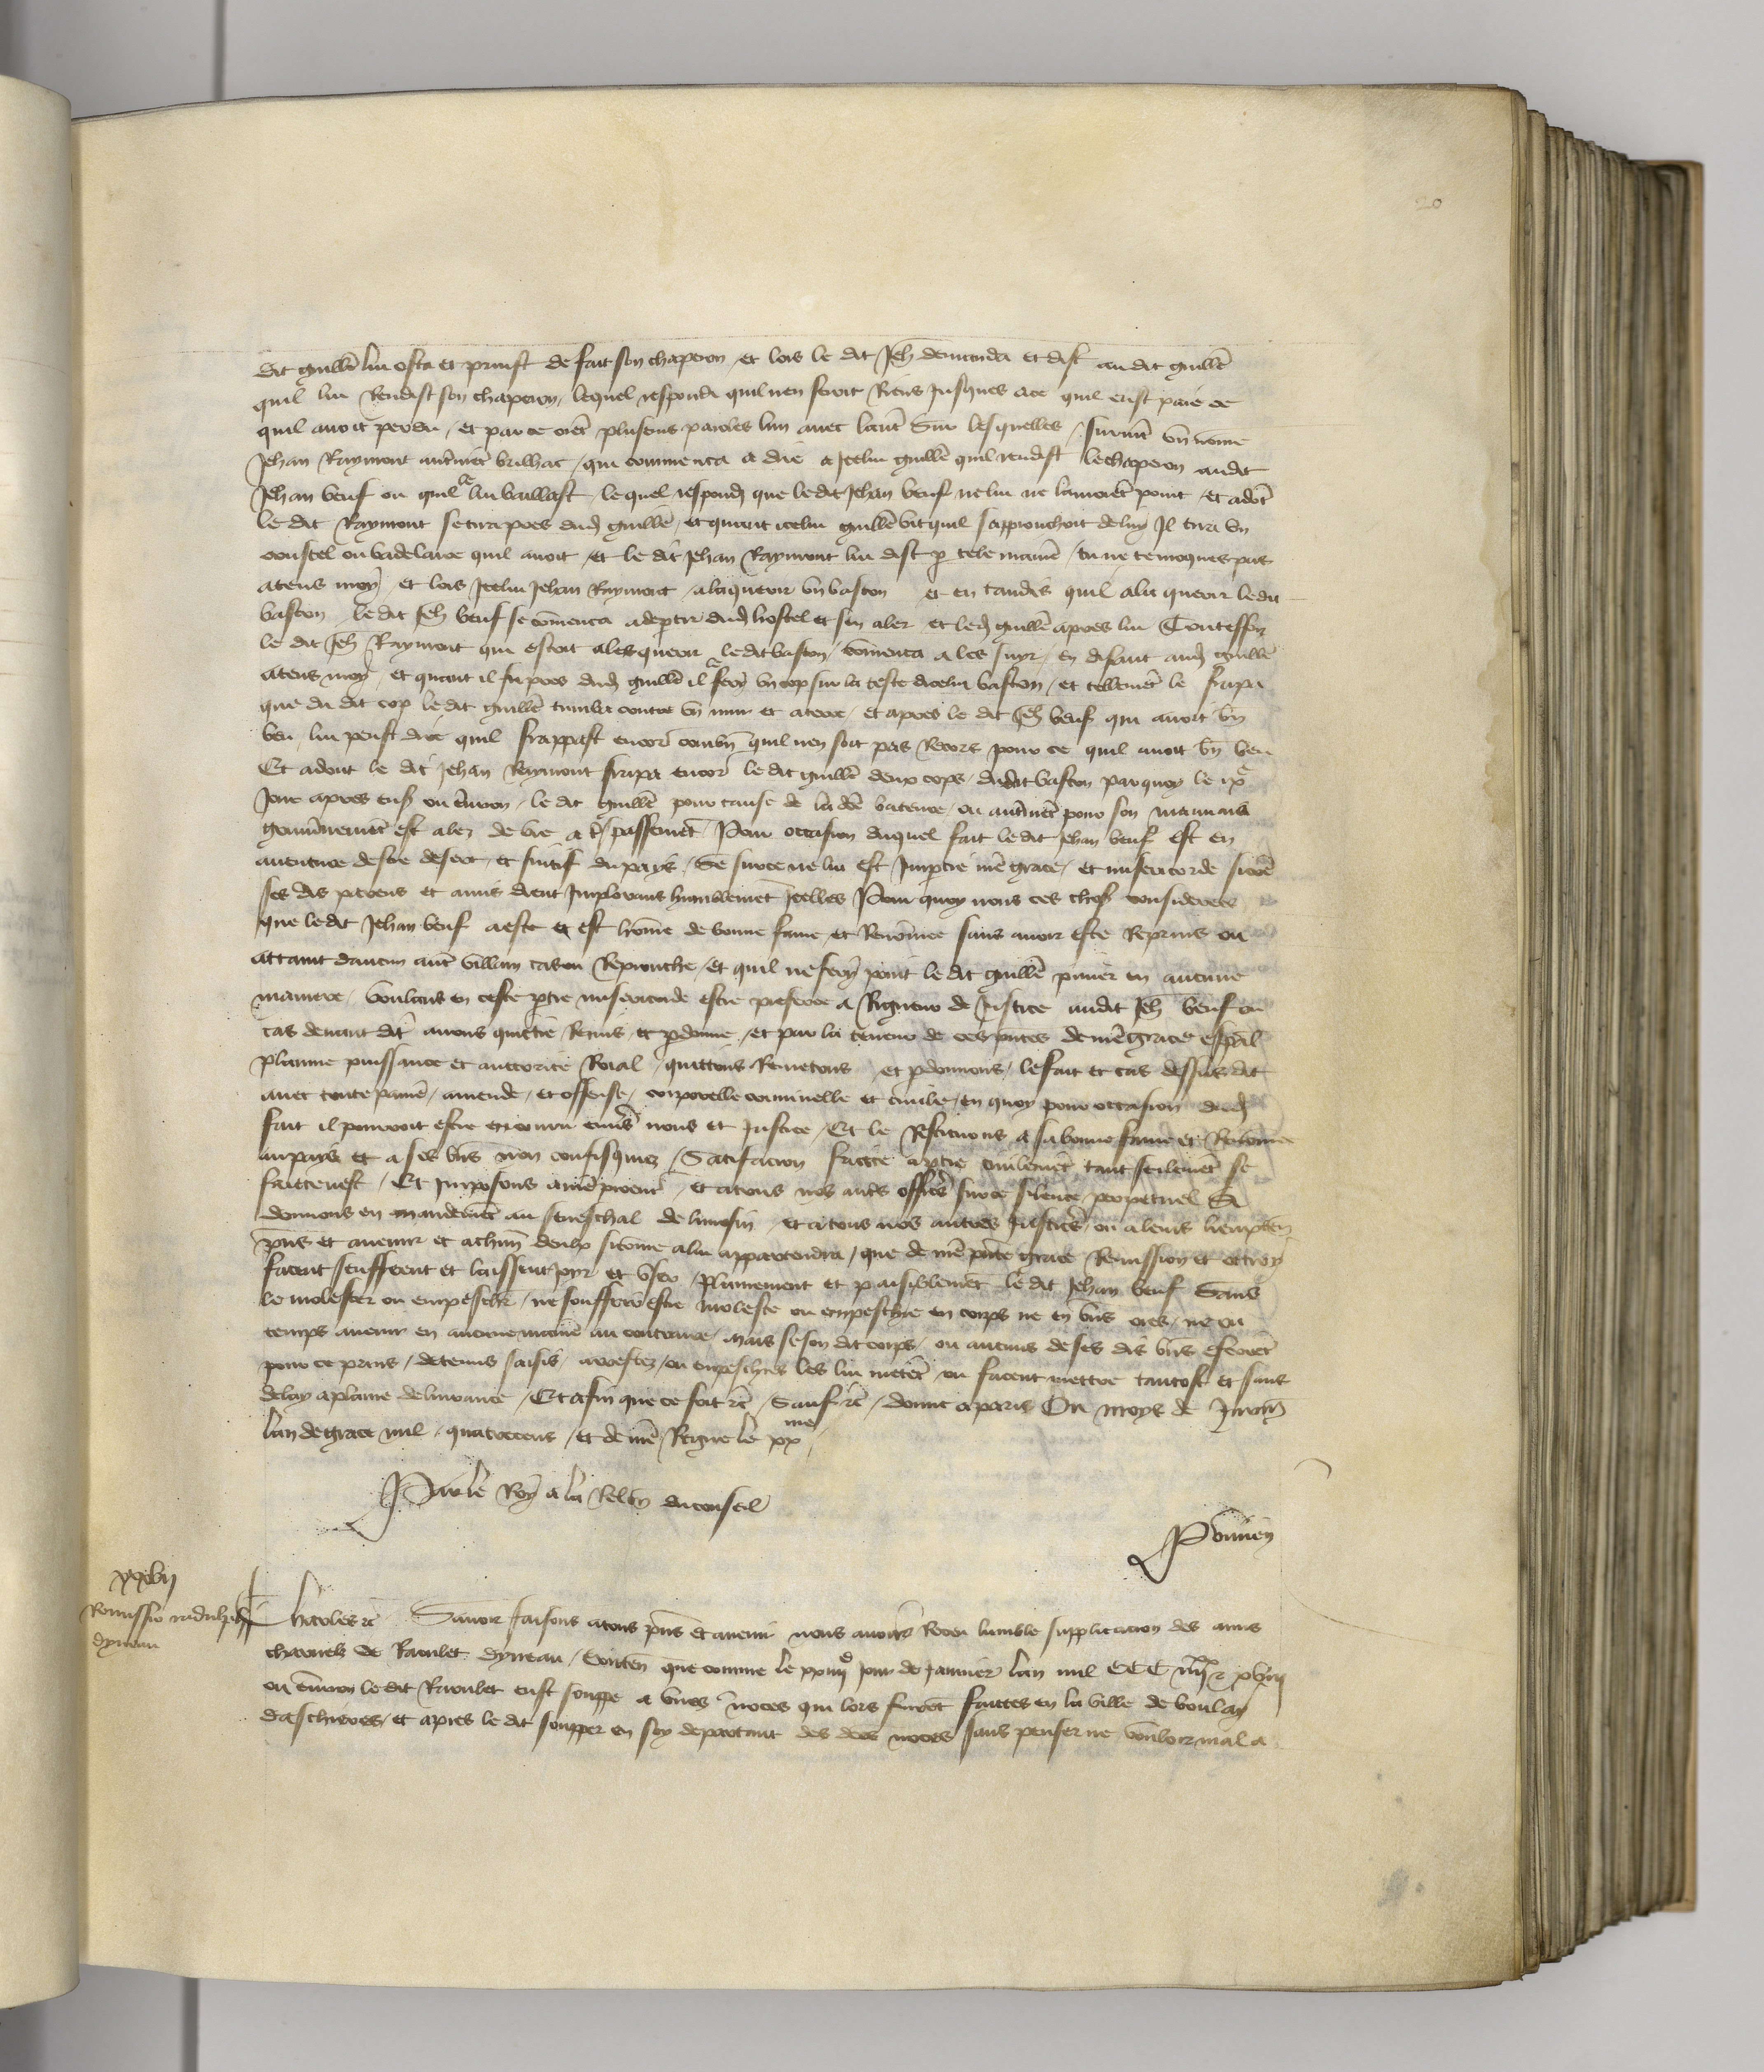 20
dit guillē lui osta et prinst de fait son chaperon et lors le dit Jeh̄ demanda et dist audit guillē
quil lui Rendist son chaperon lequel respondi quil nen feroit Riens Jusques ace quil eust paié ce
quil auoit perdu / et par ce orēt plusieurs paroles lun auec lautē Sur lesquelles / suruīt vn nōme
Jehan Raymont autremēt brilhac / qui commenca a dire a Icelui guillē quil rendist le chaperon audit
Jehan beuf ou quil le lui baillast / lequel respondi que ledit Jehan beuf ne lui ne lauroiēt point / et adōt
le dit Raymont se tira pres dud guillē / et quant icelui guillē vit quil sapprouchoit de luy Il tira vn
coustel ou badelaire quil auoit / et le dit Jehan Raymont lui dist p tele maniē / tu ne te moques pas
atens moy / et lors Icelui Jehan Raymont / ala querir vn baston et en tandis quil ala querir ledit
baston / le dit Jeh̄ beuf se cōmenca adeptir dud hostel et sen aler et led guillē apres lui Toutesfoiz
le dit Jeh̄ Raymont qui estoit alez querir le dit baston / cōmenca a les suyr / En disant aud guillē
atens moy / et quant il fu pres dud guillē il le feri vn cop sur la teste dicelui baston / et tellemēt le frapa
que du dit cop le dit guillē tumba contre vn mur et aterre / et apres le dit Jeh̄ beuf qui auoit bn̄
beu / lui peust dire quil frappast encore combn̄ quil nen soit pas Recors pour ce quil auoit bn̄ beu
Et adont le dit Jehan Raymont frapa encore le dit guillē deux cops / dudit baston parquoy le ixe
Jour apres ens ou enuiron / le dit guillē pour cause de la dce bateure / ou autremēt pour son mauuais
gouuernemēt est alez de vie a trespassemēt / Pour occasion duquel fait le dit Jehan beuf est en
auenture destre desert / et fuitif du pays / Se surce ne lui est Impartie nre grace / et misericorde sicōe
ses dis parens et amis dient Implorans humblemēt Icelles Pour quoy nous ces choses considerees
que le dit Jehan beuf a este et est hōme de bonne fame / et Renōmee sans auoir este Reprins ou
attaint daucun autre villain cas ou Reprouche / et quil ne feri point le dit guillē premier en aucune
maniere / Voulans en ceste ptie misericorde estre preferee a Rigueur de Justice audit Jeh̄ beuf ou
cas deuant dit auons quictie / Remis et pdonne / et par la teneur de ces pntes de nre grace espāl
plainne puissance et auctorite Roial / quittons Remetons et pdonnons / le fait et cas dessus dit
auec toute painē / amende / et offense / corporelle criminelle et ciuile / en quoy pour occasion dud
fait il pourroit estre encouru enuers nous et Justice / Et le Restituons a sa bonne fame et Renōmee
au pays et a ses bn̄s non confisquez / Satifacion faitte aptie ciuilemēt tant seulemēt se
faitte nest / Et Imposons anrē procureur / et atous nos autres officiers surce silence perpetuel Si
donnons en mandemēt au seneschal de limosin et atous nos autres Justiciers / ou a leurs lieuxten
pns et auenir et achm̄ deulx sicōme alui appartendra / que de nre pnte grace Remission et octroy
facent seuffrent et laissent joir et vser / plainement et paisiblemēt le dit Jehan beuf Sans
le molester ou empescher / ne souffrir estre moleste ou empeschie en corps ne en bn̄s ores / ne ou
temps auenir en aucune maniē au contraire / mais se son dit corps / ou aucuns de ses dis bn̄s estoiēt
pour ce prins / detenus saisis / arrestez / ou empeschies les lui metēt / ou facent mettre tantost et sans
delay aplaine deliurance / Et afin que ce soit &c / Sauf &c / donne a paris Ou moys de Juing
lan de grace mil quatrecens / et de nre Regne le xxme /
Par le Roy a la Relon du conseil
Pōmien
xxvij
Remissio radulphi
dyneau
Charles &c Sauoir faisons atous pns et auenir nous auoir Receu lumble supplicacion des amis
charnelz de Raoulet dyneau / Conten que comme le xxiiije jour de Januier lan mil CCC iiijxx & xviij
ou enuiron le dit Raoulet eust souppe a vnes noces qui lors furēt faittes en la ville de boulay
daschieres / et apres le dit soupper en soy departant des dces noces sans penser ne vouloir mal a